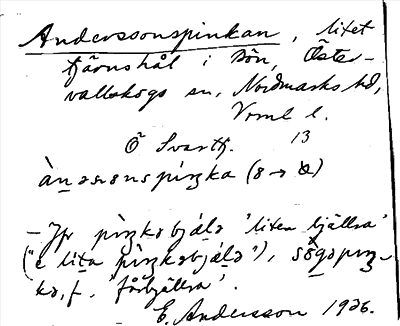 Anderssonspinkan, litet
tjärnshål i Bön, Öster-
vallskogs sn, Nordmarks hd,
Vrml l.
Ö Svartk. 13
àn̲ǝsɷnspíŋka (8→
– Jfr pìŋkǝbjálǝ 'liten bjällra'
("e lita pìŋkǝbjálǝ"),
ka, f. 'fårbjällra'.
E. Andersson 1936.